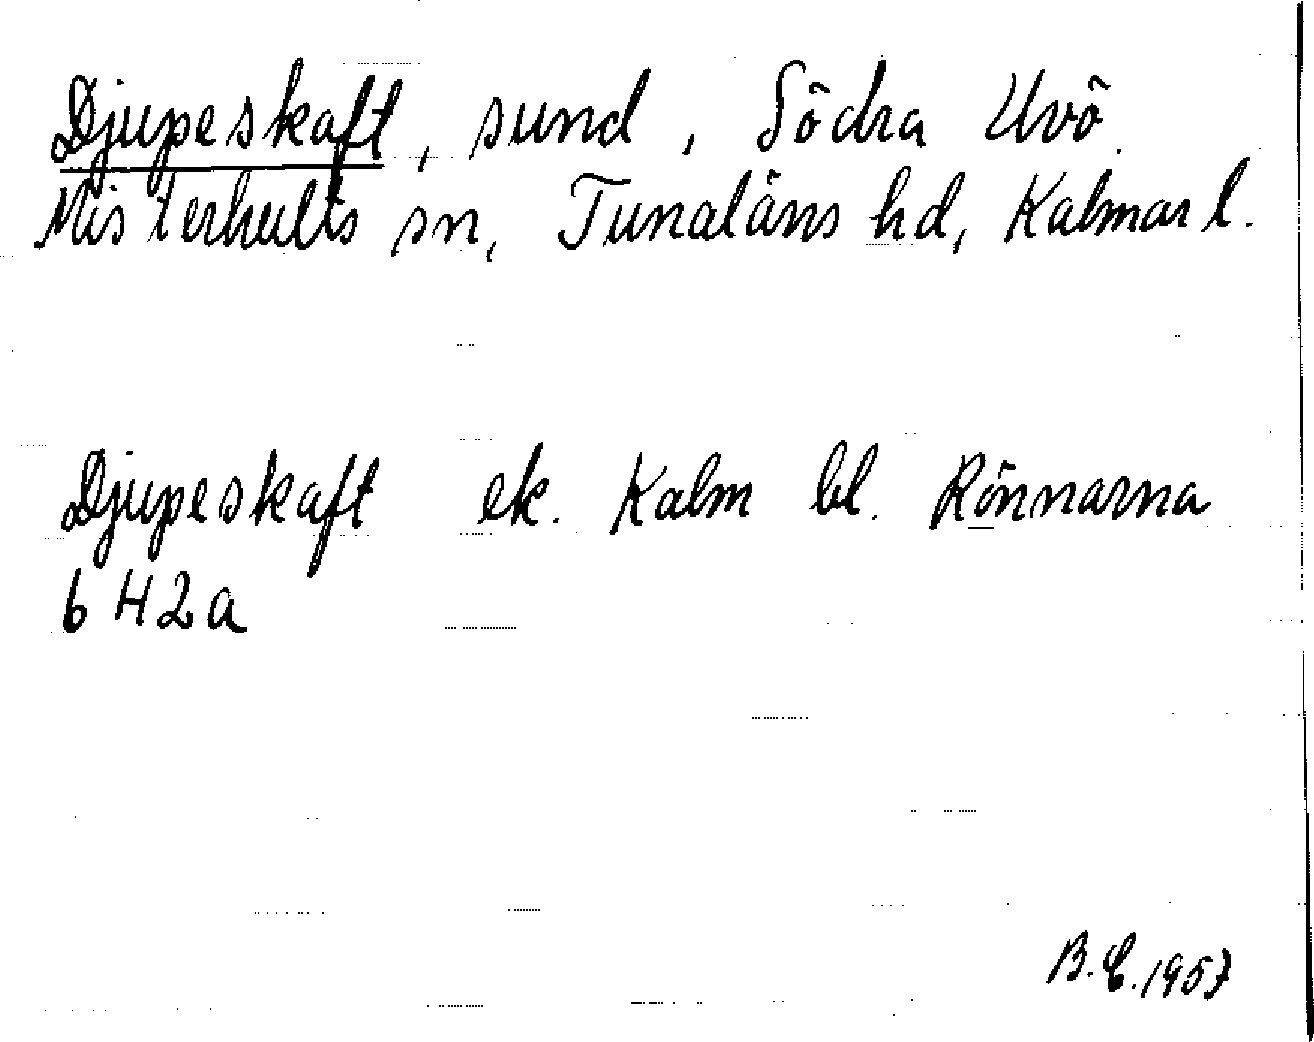 Djupeskaft, sund, Södra Uvö.
Misterhults sn, Tunaläns hd, Kalmar l.
Djupeskaft ek. Kalm bl. Rönnarna
6 H2a
B.E. 1957